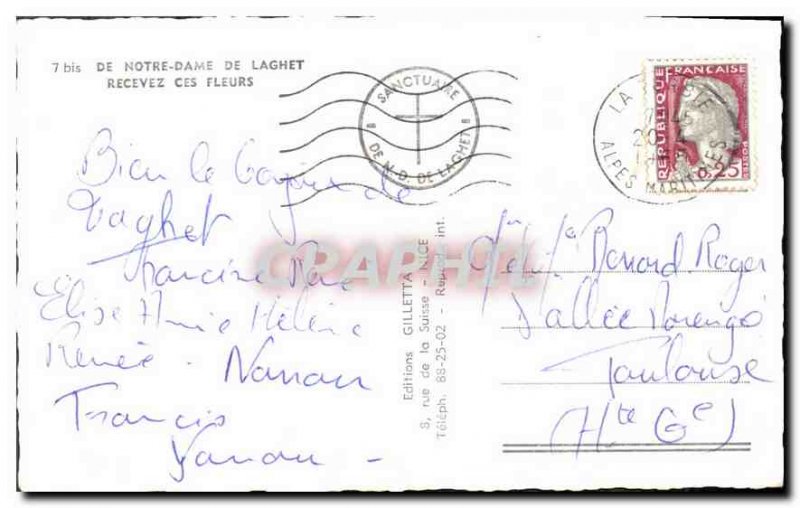 7 bis DE NOTRE-DAME DE LAGHET
RECEVEZ CES FLEURS
SANCTUAIRE
DE N. D. DE LAGHET
LA
20
ALPES MARITIMES
REPUBLIQUE FRANÇAISE
POSTES
0,25
Bien le bonjour de
Laghet
Francine
Elise Anie Hélène
Renée - Nanou
Francis
Yanou -
Editions GILLETTA
8, rue de la Suisse - NICE
Téléph. 88-25-02 - Reprod. int.
CPAPHIL
Renard Roger
Vallée
Toulouse
(Hte Ge)